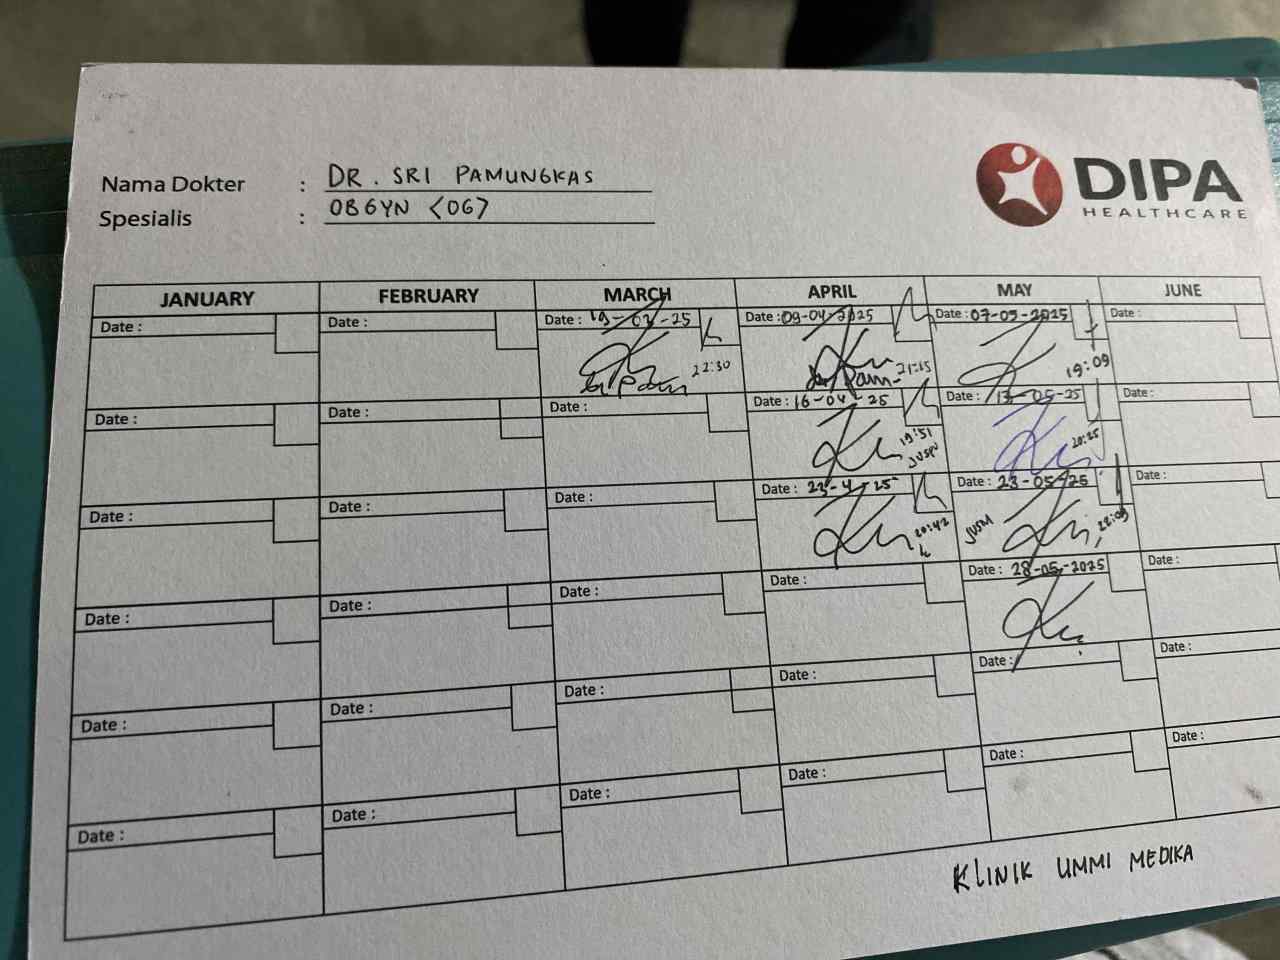 Nama Dokter : DR. SRI PAMUNGKAS
Spesialis : OBGYN <OG>
DIPA
HEALTHCARE
JANUARY FEBRUARY MARCH APRIL MAY JUNE
Date : Date : Date : 19-03-25 Date : 09-04-2025 Date : 07-05-2025 Date :
22:30 21:15 19:09
Date : Date : Date : Date : 16-04-25 Date : 13-05-25 Date :
19:51 20:25
Date : Date : Date : Date : 23-4-25 Date : 23-05-25 Date :
20:42 22:09
Date : Date : Date : Date : Date : 28-05-2025 Date :
Date : Date : Date : Date : Date : Date :
Date : Date : Date : Date : Date : Date :
KLINIK UMMI MEDIKA